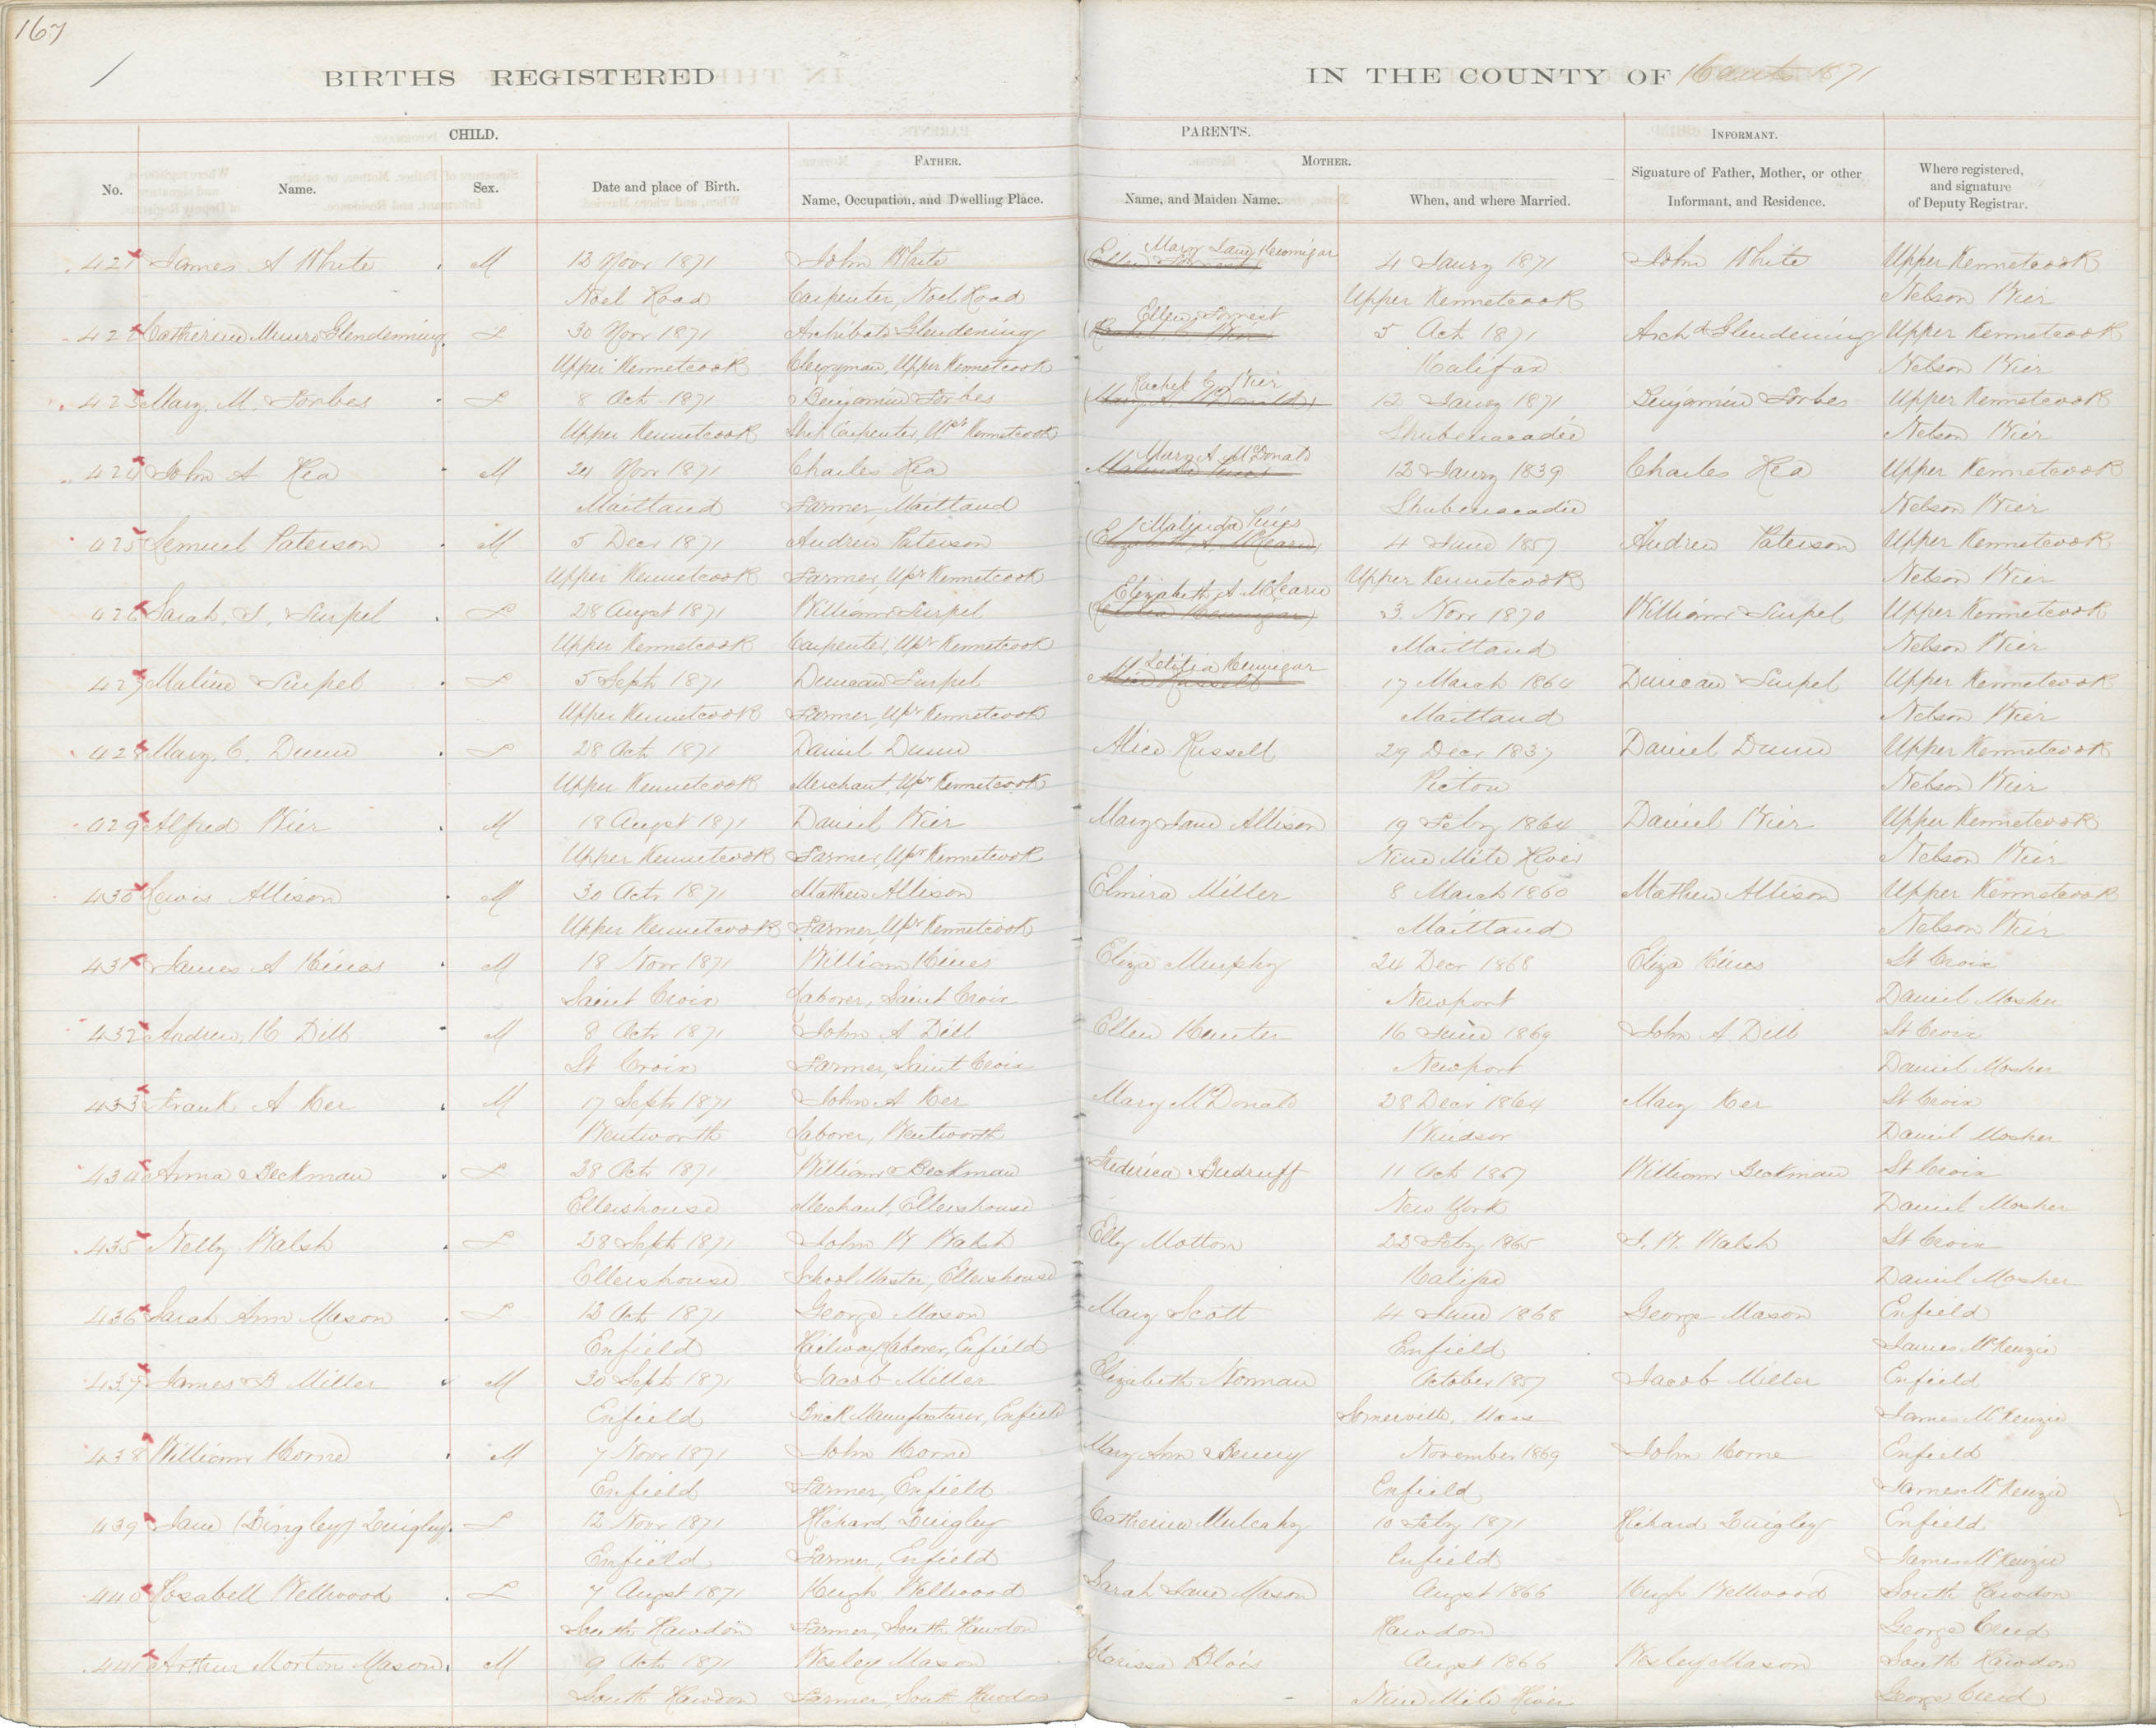 167
1
BIRTHS REGISTERED IN THE COUNTY OF Hants 1871
CHILD. PARENTS. INFORMANT.
FATHER. MOTHER.
No. Name. Sex. Date and place of Birth. Name, Occupation, and Dwelling Place. Name, and Maiden Name. When, and where Married. Signature of Father, Mother, or other Informant, and Residence. Where registered, and signature of Deputy Registrar.
Mary Jane Hennigar
421 James A White M 13 Novr 1871 John White (Ellen Forrest) 4 Jany 1871 John White Upper Kennetcook
Noel Road Carpenter, Noel Road Upper Kennetcook Nelson Wier
Ellen Forrest
422 Catherine Munro Glendenning F 30 Novr 1871 Archibald Glendening (Rachel C Wier 5 Oct 1871 Archd Glendening Upper Kennetcook
Upper Kennetcook Clergyman, Upper Kennetcook Halifax Nelson Wier
Rachel C Wier
423 Mary M. Forbes F 8 Oct 1871 Benjamin Forbes (Mary A. McDonald) 12 Jany 1871 Benjamin Forbes Upper Kennetcook
Upper Kennetcook Ship Carpenter, Upr Kennetcook Shubenacadie Nelson Wier
Mary A McDonald
424 John A Hea M 24 Novr 1871 Charles Hea Malinda 12 Jany 1839 Charles Hea Upper Kennetcook
Maitland Farmer, Maitland Shubenacadie Nelson Wier
Malinda
425 Lemuel Paterson M 5 Decr 1871 Andrew Paterson (Elizabeth A. McLearn) 4 June 1857 Andrew Paterson Upper Kennetcook
Upper Kennetcook Farmer, Upr Kennetcook Upper Kennetcook Nelson Wier
Elizabeth A McLearn
426 Sarah, J, F 28 Augst 1871 William (Letitia Hennigar) 3. Novr 1870 William Upper Kennetcook
Upper Kennetcook Carpenter, Upr Kennetcook Maitland Nelson Wier
Letitia Hennigar
427 F 5 Sept 1871 Duncan Alice Russell 17 March 1864 Duncan Upper Kennetcook
Upper Kennetcook Farmer, Upr Kennetcook Maitland Nelson Wier
428 Mary C. Dunn F 28 Oct 1871 Daniel Dunn Alice Russell 29 Decr 1837 Daniel Dunn Upper Kennetcook
Upper Kennetcook Merchant, Upr Kennetcook Pictou Nelson Wier
429 Alfred Wier M 18 Augst 1871 Daniel Wier Mary Jane Allison 19 Feby 1864 Daniel Wier Upper Kennetcook
Upper Kennetcook Farmer, Upr Kennetcook Nine Mile River Nelson Wier
430 Lewis Allison M 30 Octr 1871 Mathew Allison Elmira Miller 8 March 1860 Mathew Allison Upper Kennetcook
Upper Kennetcook Farmer, Upr Kennetcook Maitland Nelson Wier
431 James A Hines M 18 Novr 1871 William Hines Eliza Murphy 24 Decr 1868 Eliza Hines St Croix
Saint Croix Laborer, Saint Croix Newport Daniel Mosher
432 Andrew, H Dill M 8 Octr 1871 John A Dill Ellen Hunter 16 June 1869 John A Dill St Croix
St Croix Farmer, Saint Croix Newport Daniel Mosher
433 Frank A Ker M 17 Septr 1871 John A Ker Mary McDonald 28 Decr 1864 Mary Ker St Croix
Wentworth Laborer, Wentworth Windsor Daniel Mosher
434 Anna Beckman F 28 Octr 1871 William Beckman 11 Oct 1867 William Beckman St Croix
Ellershouse Merchant, Ellershouse New York Daniel Mosher
435 Nelly Walsh F 28 Septr 1871 John W Walsh Elly Motton 22 Feby 1865 J. W. Walsh St Croix
Ellershouse School Master, Ellershouse Halifax Daniel Mosher
436 Sarah Ann Mason F 13 Oct 1871 George Mason Mary Scott 14 June 1868 George Mason Enfield
Enfield Railway Laborer, Enfield Enfield James McKenzie
437 James B Miller M 30 Sept 1871 Jacob Miller Elizabeth Norman October 1857 Jacob Miller Enfield
Enfield Brick Manufacturer, Enfield Somerville, Mass James McKenzie
438 William Horne M 7 Novr 1871 John Horne Mary Ann November 1869 John Horne Enfield
Enfield Farmer, Enfield Enfield James McKenzie
439 Jane (Dingley) Quigley F 12 Novr 1871 Richard Quigley Catherine Mulcahy 10 Feby 1871 Richard Quigley Enfield
Enfield Farmer, Enfield Enfield James McKenzie
440 Rosabell Wellwood F 7 Augst 1871 Hugh Wellwood Sarah Jane Mason Augst 1866 Hugh Wellwood South Rawdon
South Rawdon Farmer, South Rawdon Rawdon George Creed
441 Arthur Morton Mason M 9 Oct 1871 Wesley Mason Clarissa Blois Augst 1866 Wesley Mason South Rawdon
South Rawdon Farmer, South Rawdon Nine Mile River George Creed